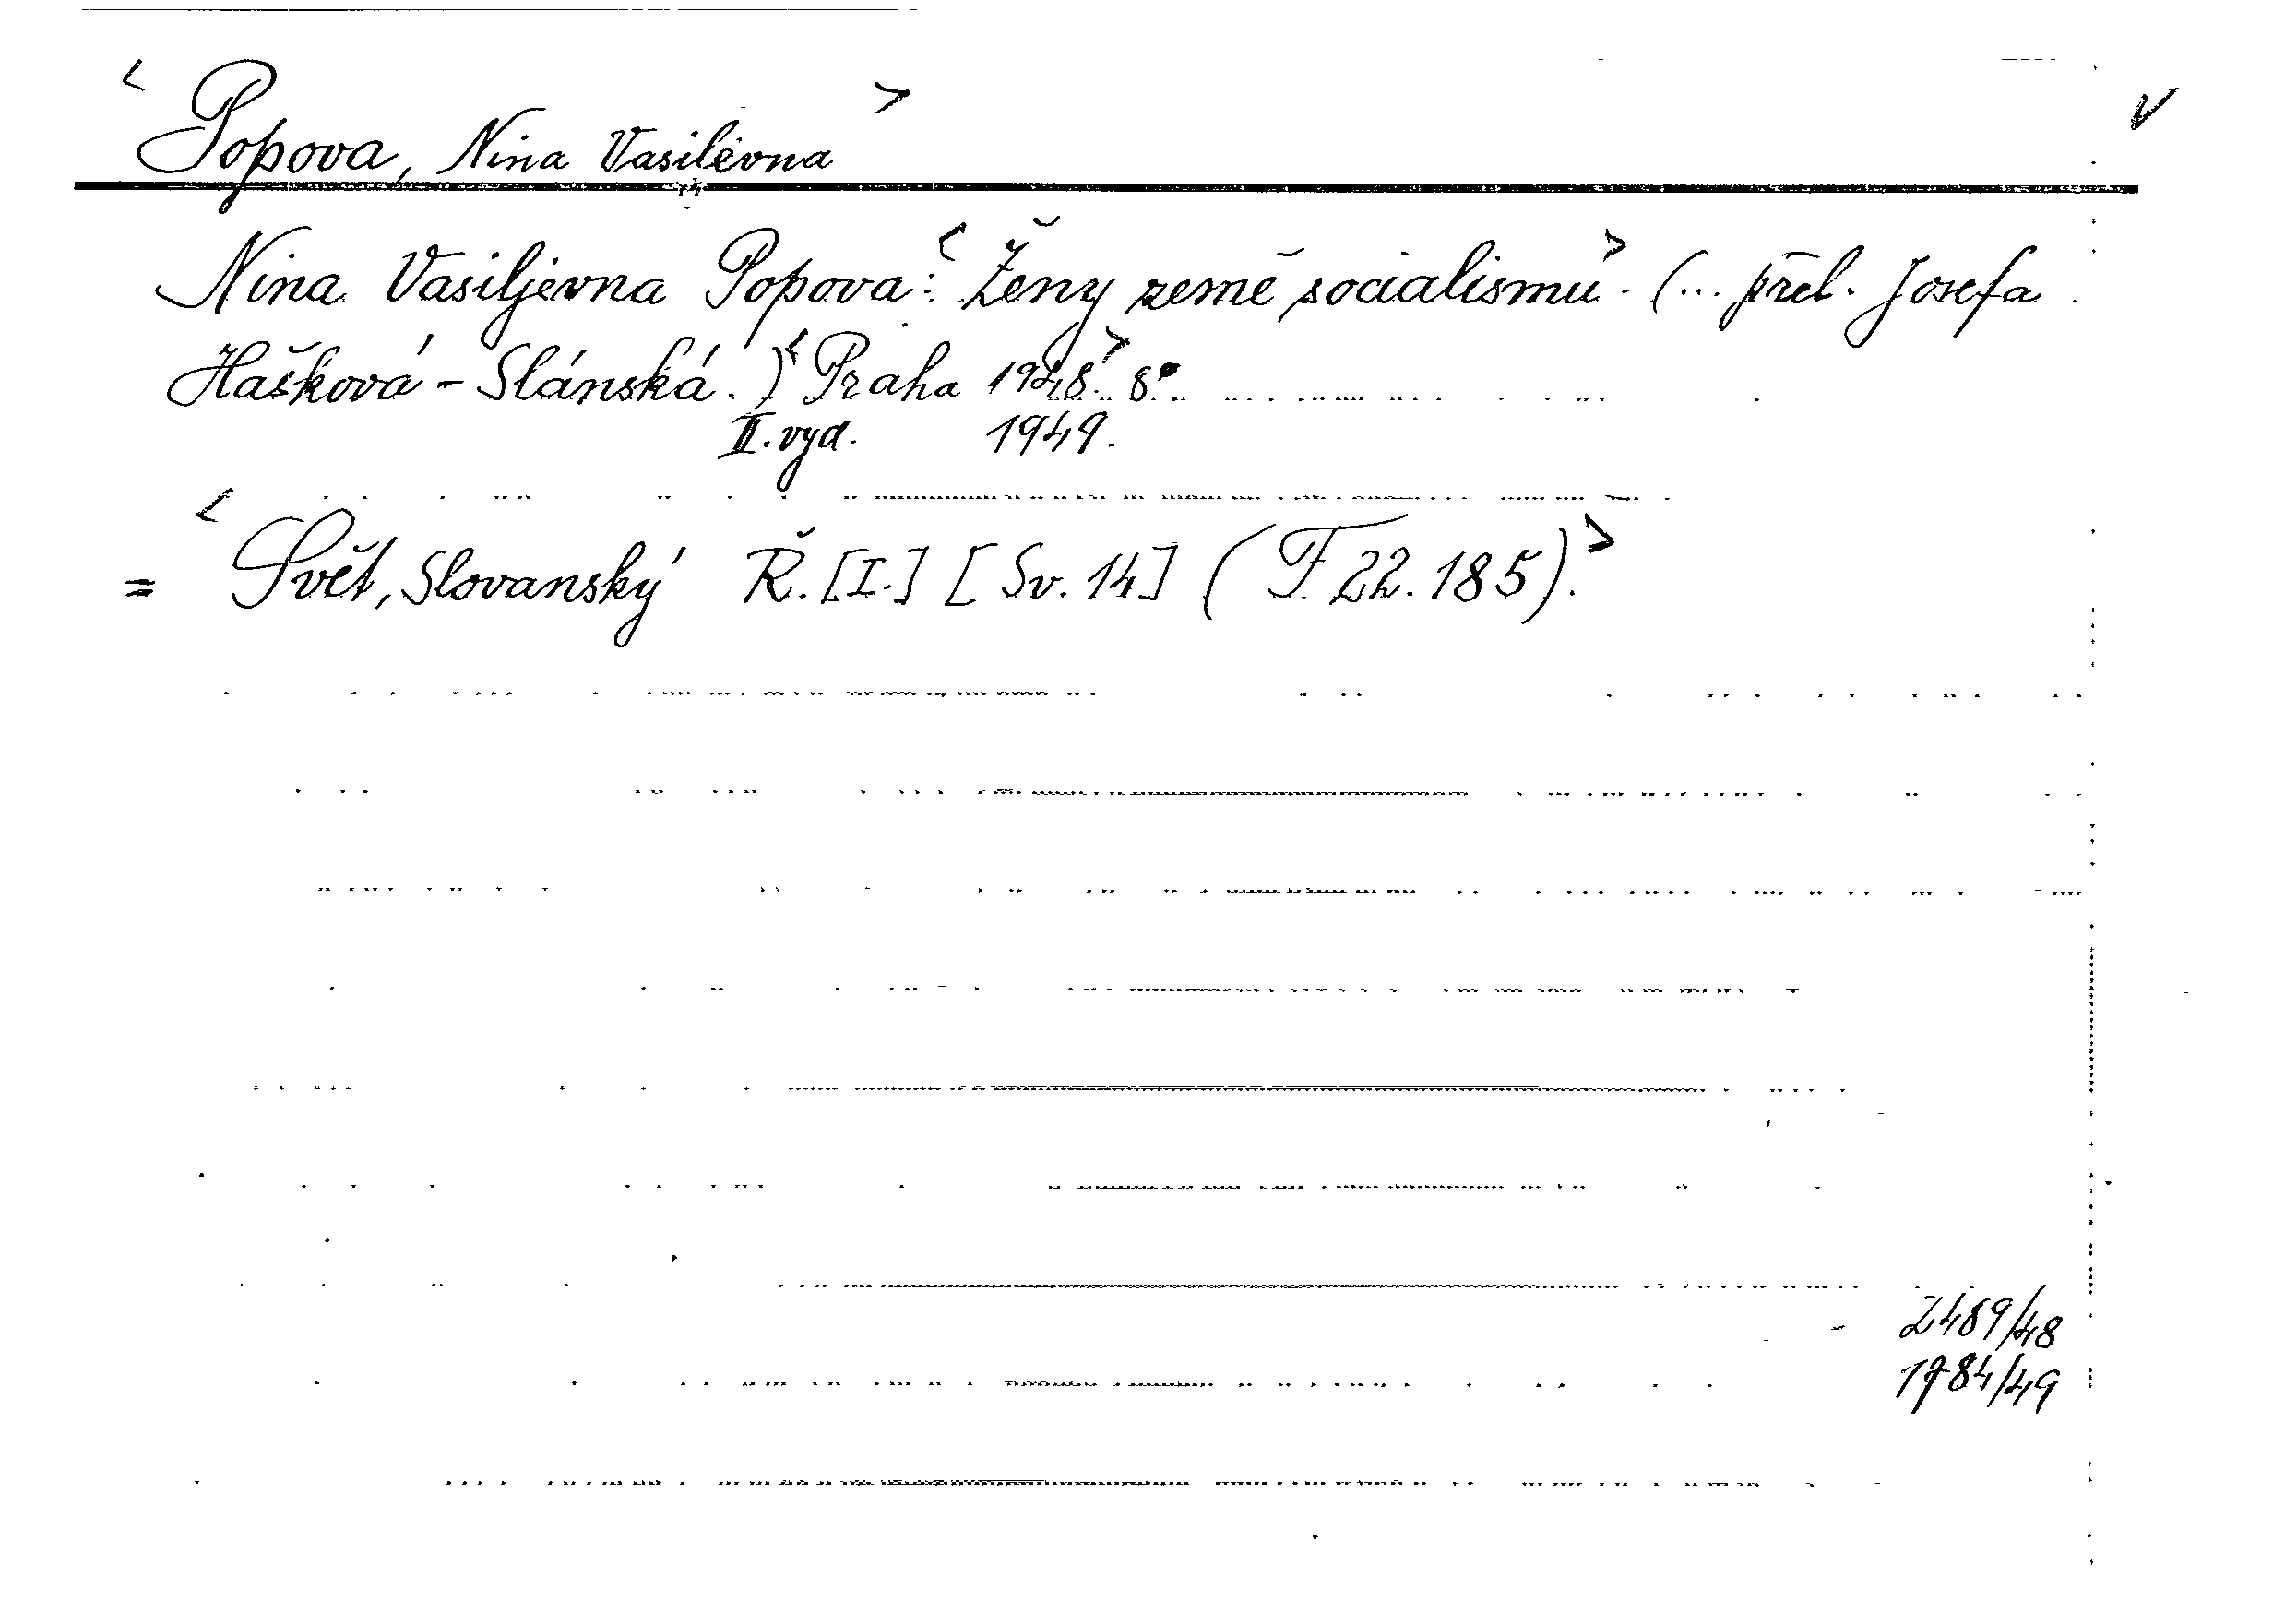 < Popova, Nina Vasilevna > V
Nina Vasiljevna Popova: < Ženy země socialismu >. (... přel. Josefa
Hašková - Slánská.) < Praha 1948. > 8°
II. vyd. 1949.
= < Svět, Slovanský Ř. [I.] [Sv. 14] (F 22.185). >
2489/48
1784/49